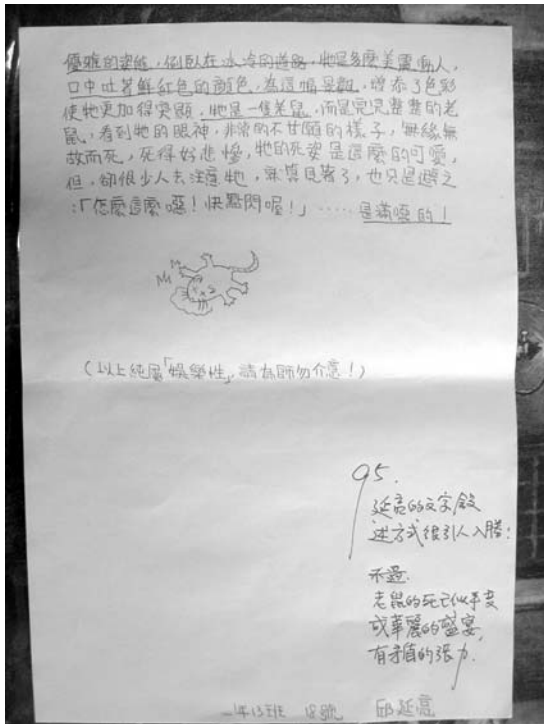 優雅的姿態,倒臥在冰冷的道路,牠是多麼美麗動人,
口中吐著鮮紅色的顏色,為這幅景觀,增添了色彩
使牠更加得突顯,牠是一隻老鼠,而是完完整整的老
鼠,看到牠的眼神,非常的不甘願的樣子,無緣無
故而死,死得好悲慘,牠的死姿是這麼的可愛,
但,卻很少人去注意牠,就算見著了,也只是避之
:「怎麼這麼噁!快點閃喔!」……是滿噁的!
(以上純屬「娛樂性」,請為師勿介意!)
95.
延亮的文字敘
述方式很引人入勝;
不過.
老鼠的死已似乎变
成華麗的盛宴,
有矛盾的張力.
一年13班 18號 邱延亮